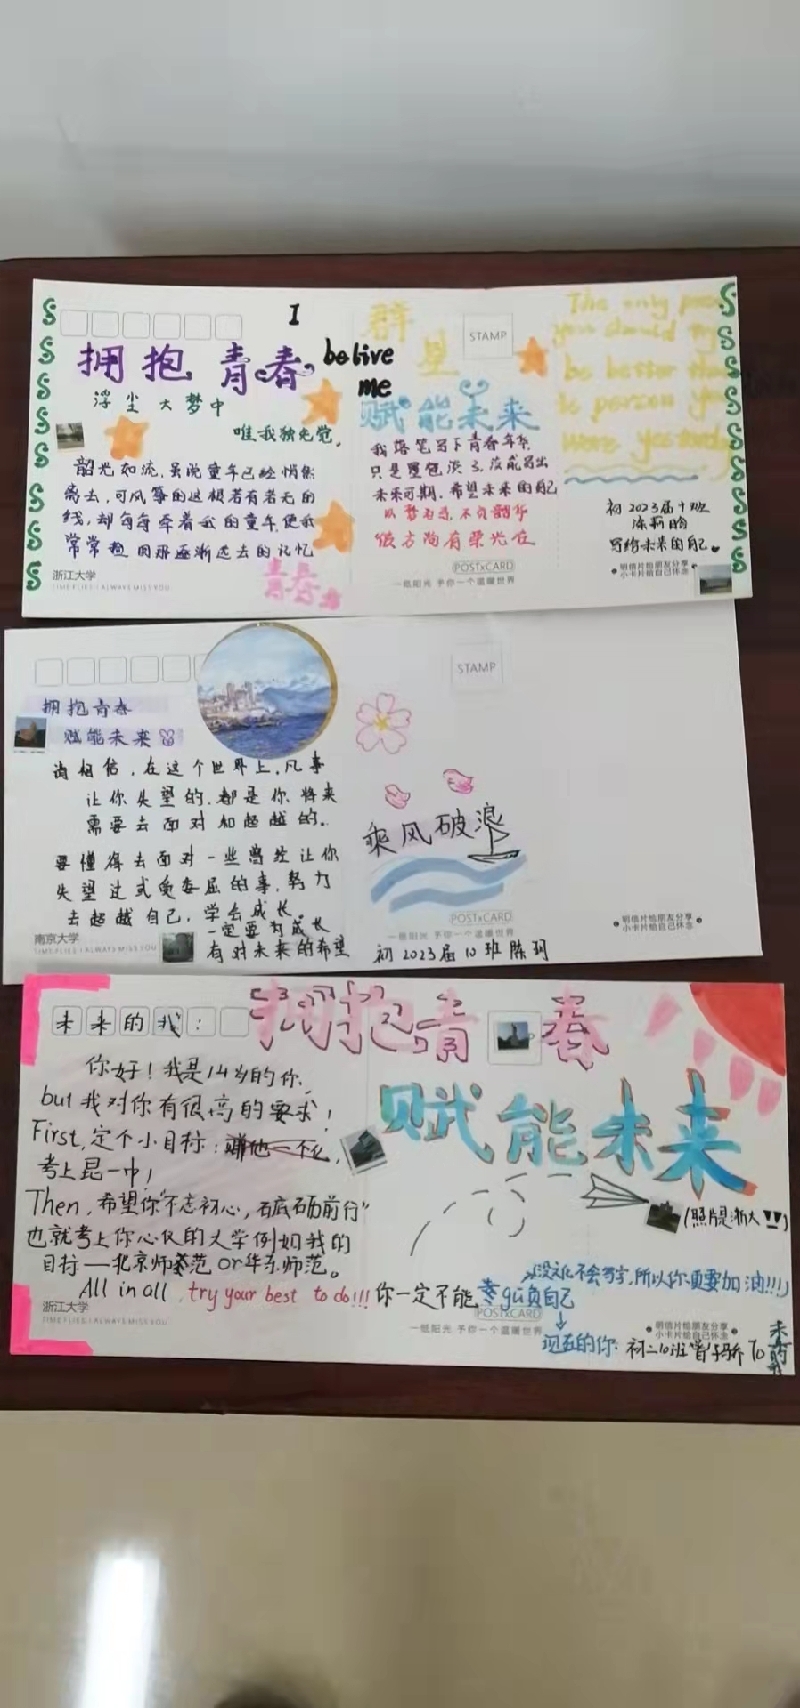 I
belive
me
拥抱青春
浮尘大梦中
唯我独先觉，
韶光如流，虽说童年已经悄然
离去，可风筝的这根若有若无的
线，却每每牵着我的童年，使我
常常想回那逐渐远去的记忆
浙江大学
TIME FLIES I ALWAYS MISS YOU
青春
群
星
STAMP
赋能未来
我落笔写下青春年华
只是墨色淡了，没能写出
未来可期，希望未来的自己
以梦为马，不负韶华
彼方尚有荣光在
POSTxCARD
一纸阳光 予你一个温暖世界
The only
you should
be better than
person you
were yesterday
初2023届十班
写给未来的自己
明信片给朋友分享
小卡片给自己怀念
STAMP
拥抱青春
赋能未来
请相信，在这个世界上，凡事
让你失望的，都是你将来
需要去面对和超越的..
要懂得去面对一些曾经让你
失望过或受委屈的事，努力
去超越自己，学会成长。
一定要为成长
有对未来的希望
南京大学
TIME FLIES I ALWAYS MISS YOU
乘风破浪
POSTxCARD
一纸阳光 予你一个温暖世界
初2023届10班陈珂
明信片给朋友分享
小卡片给自己怀念
未来的我：
拥抱青春
赋能未来
你好！我是14岁的你，
but我对你有很高的要求！
First，定个小目标：
考上昆一中！
Then，希望你"不忘初心，砥砺前行"
也就考上你心仪的大学例如我的
目标——北京师范or华东师范。
All in all，try your best to do!!!你一定不能辜gū负自己
(照片是浙大!!)
没文化不会写字，所以你更要加油!!!)
浙江大学
TIME FLIES I ALWAYS MISS YOU
POSTxCARD
一纸阳光 予你一个温暖世界
明信片给朋友分享
小卡片给自己怀念
现在的你：初二10班 To 未来的我